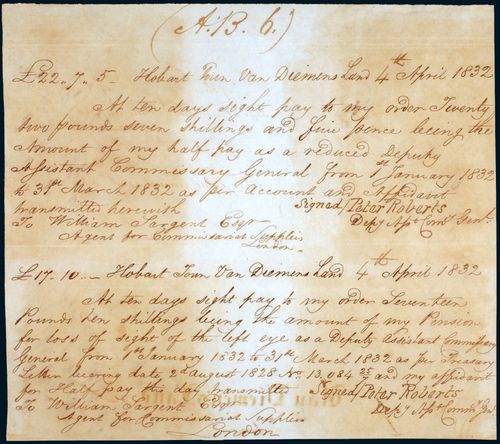 (A. B. 6.)
£22..7..5 - Hobart Town Van Diemens Land 4th April 1832
At ten days sight pay to my order Twenty
two pounds seven shillings and five pence being the
Amount of my half pay as a reduced Deputy
Assistant Commissary General from 1 January 1832
to 31st March 1832 as per Account and Affidavit
transmitted herewith Signed/Peter Roberts
To William Sargent Esqr Depy Asst Comy Genl
Agent for Commissariat Supplies
London
£17..10..- Hobart Town Van Diemens Land 4th April 1832
At ten days sight pay to my order Seventeen
Pounds ten shillings being the amount of my Pension
for loss of sight of the left eye as a Deputy Assistant Commissary
General from 1st January 1832 to 31st March 1832 as per Treasury
Letter bearing date 2d August 1828 No. 13,084 and my affidavit
for Half pay this day transmitted Signed/Peter Roberts
To William Sargent Esqr Depy Asst Comm Genl
Agent for Commissariat Supplies
London